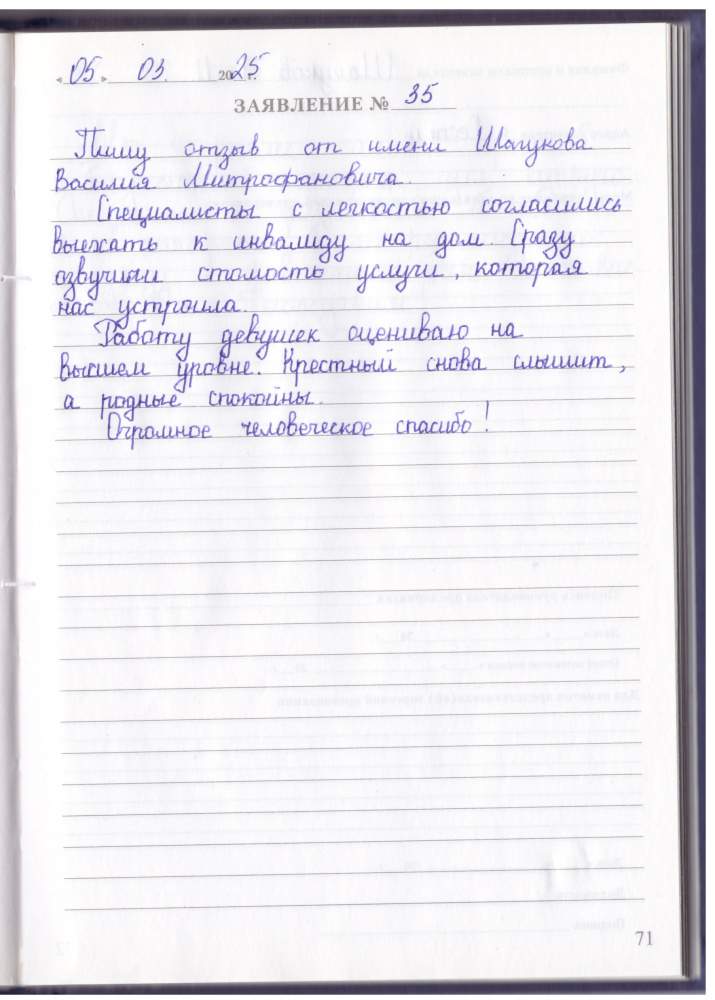 «05» 03. 2025 г.
ЗАЯВЛЕНИЕ № 35
Пишу отзыв от имени Шагукова
Василия Митрофановича.
Специалисты с легкостью согласились
выехать к инвалиду на дом. Сразу
озвучили стоимость услуги, которая
нас устроила.
Работу девушек оцениваю на
высшем уровне. Крестный снова слышит,
а родные спокойны.
Огромное человеческое спасибо!
71